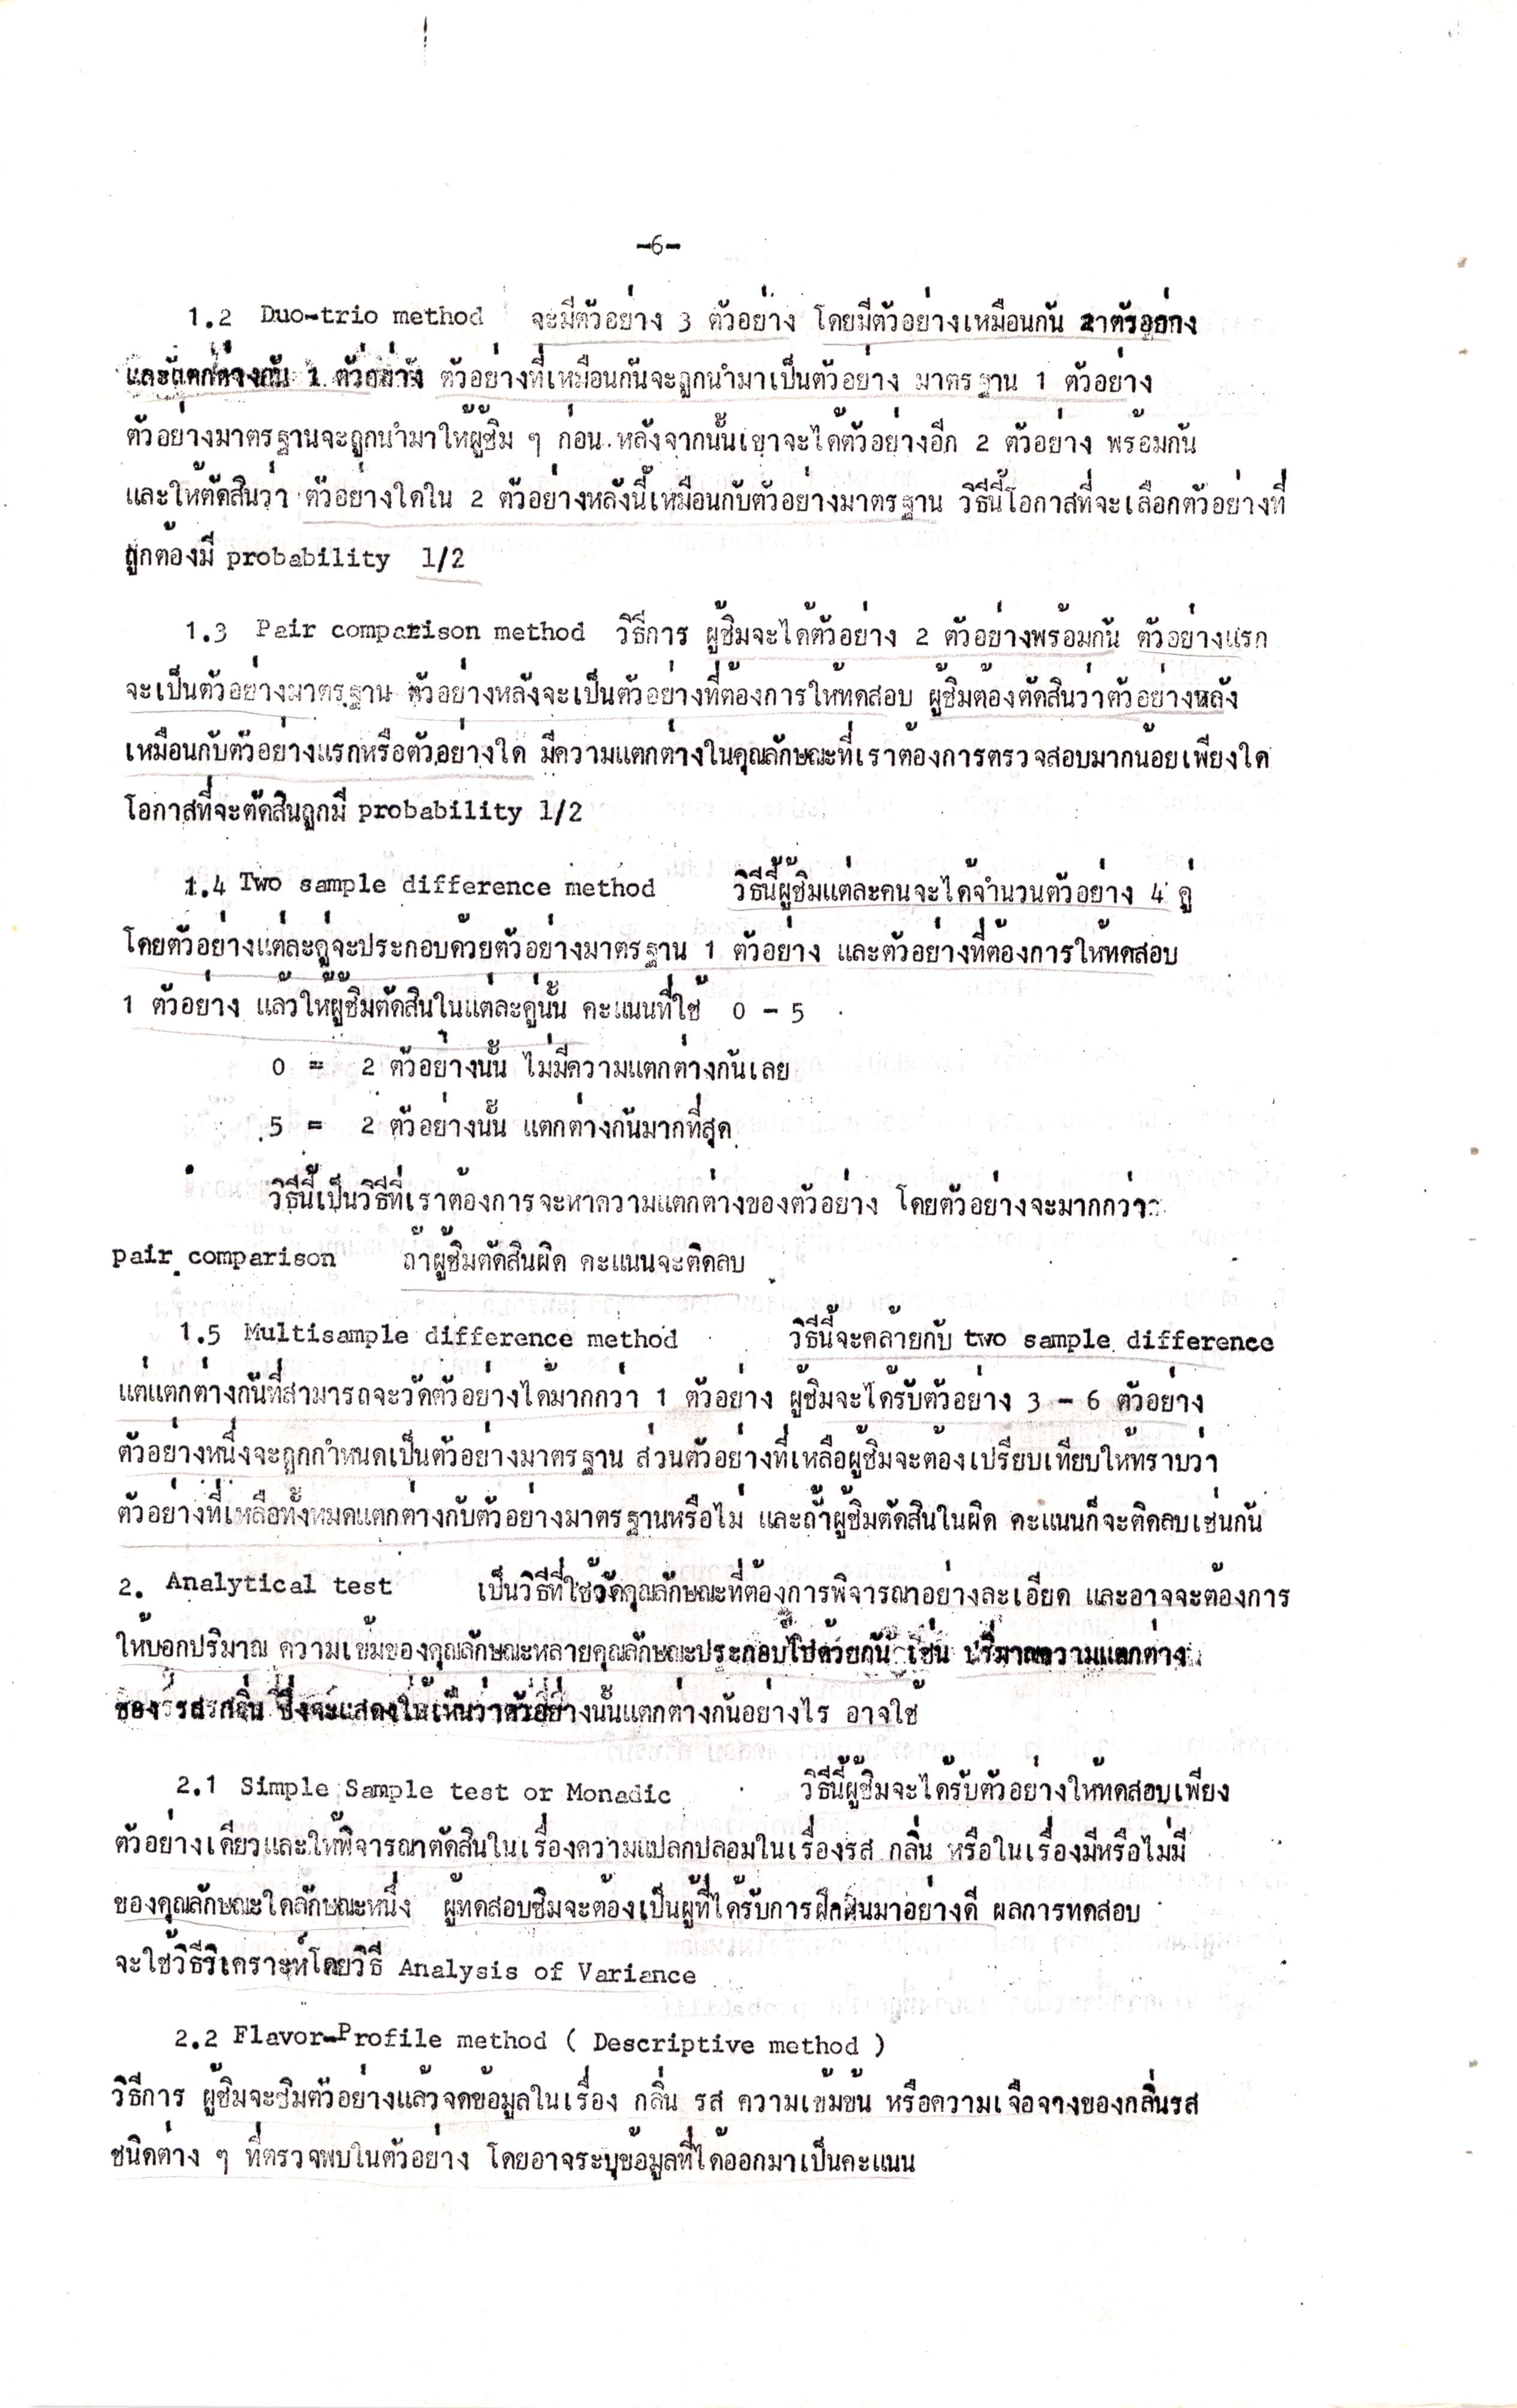 -6-
1.2 Duo-trio method จะมีตัวอย่าง 3 ตัวอย่าง โดยมีตัวอย่างเหมือนกัน 2 ตัวอย่าง
และแตกต่างกัน 1 ตัวอย่าง ตัวอย่างที่เหมือนกันจะถูกนำมาเป็นตัวอย่าง มาตรฐาน 1 ตัวอย่าง
ตัวอย่างมาตรฐานจะถูกนำมาให้ผู้ชิม ๆ ก่อน หลังจากนั้นเขาจะได้ตัวอย่างอีก 2 ตัวอย่าง พร้อมกัน
และให้ตัดสินว่า ตัวอย่างใดใน 2 ตัวอย่างหลังนี้เหมือนกับตัวอย่างมาตรฐาน วิธีนี้โอกาสที่จะเลือกตัวอย่างที่
ถูกต้องมี probability 1/2
1.3 Pair comparison method วิธีการ ผู้ชิมจะได้ตัวอย่าง 2 ตัวอย่างพร้อมกัน ตัวอย่างแรก
จะเป็นตัวอย่างมาตรฐาน ตัวอย่างหลังจะเป็นตัวอย่างที่ต้องการให้ทดสอบ ผู้ชิมต้องตัดสินว่าตัวอย่างหลัง
เหมือนกับตัวอย่างแรกหรือตัวอย่างใด มีความแตกต่างในคุณลักษณะที่เราต้องการตรวจสอบมากน้อยเพียงใด
โอกาสที่จะตัดสินถูกมี probability 1/2
1.4 Two sample difference method วิธีนี้ผู้ชิมแต่ละคนจะได้จำนวนตัวอย่าง 4 คู่
โดยตัวอย่างแต่ละคู่จะประกอบด้วยตัวอย่างมาตรฐาน 1 ตัวอย่าง และตัวอย่างที่ต้องการให้ทดสอบ
1 ตัวอย่าง แล้วให้ผู้ชิมตัดสินในแต่ละคู่นั้น คะแนนที่ใช้ 0 - 5
0 = 2 ตัวอย่างนั้น ไม่มีความแตกต่างกันเลย
5 = 2 ตัวอย่างนั้น แตกต่างกันมากที่สุด
วิธีนี้เป็นวิธีที่เราต้องการจะหาความแตกต่างของตัวอย่าง โดยตัวอย่างจะมากกว่า
pair comparison ถ้าผู้ชิมตัดสินผิด คะแนนจะติดลบ
1.5 Multisample difference method วิธีนี้จะคล้ายกับ two sample difference
แต่แตกต่างกันที่สามารถจะวัดตัวอย่างได้มากกว่า 1 ตัวอย่าง ผู้ชิมจะได้รับตัวอย่าง 3 - 6 ตัวอย่าง
ตัวอย่างหนึ่งจะถูกกำหนดเป็นตัวอย่างมาตรฐาน ส่วนตัวอย่างที่เหลือผู้ชิมจะต้องเปรียบเทียบให้ทราบว่า
ตัวอย่างที่เหลือทั้งหมดแตกต่างกับตัวอย่างมาตรฐานหรือไม่ และถ้าผู้ชิมตัดสินในผิด คะแนนก็จะติดลบเช่นกัน
2. Analytical test เป็นวิธีที่ใช้วัดคุณลักษณะที่ต้องการพิจารณาอย่างละเอียด และอาจจะต้องการ
ให้บอกปริมาณ ความเข้มของคุณลักษณะหลายคุณลักษณะประกอบไปด้วยกัน เช่น ปริมาณความแตกต่าง
ของ รส กลิ่น ซึ่งจะแสดงให้เห็นว่าตัวอย่างนั้นแตกต่างกันอย่างไร อาจใช้
2.1 Simple Sample test or Monadic วิธีนี้ผู้ชิมจะได้รับตัวอย่างให้ทดสอบเพียง
ตัวอย่างเดียวและให้พิจารณาตัดสินในเรื่องความแปลกปลอมในเรื่องรส กลิ่น หรือในเรื่องมีหรือไม่มี
ของคุณลักษณะใดลักษณะหนึ่ง ผู้ทดสอบชิมจะต้องเป็นผู้ที่ได้รับการฝึกฝนมาอย่างดี ผลการทดสอบ
จะใช้วิธีวิเคราะห์โดยวิธี Analysis of Variance
2.2 Flavor-Profile method ( Descriptive method )
วิธีการ ผู้ชิมจะชิมตัวอย่างแล้วจดข้อมูลในเรื่อง กลิ่น รส ความเข้มข้น หรือความเจือจางของกลิ่นรส
ชนิดต่าง ๆ ที่ตรวจพบในตัวอย่าง โดยอาจระบุข้อมูลที่ได้ออกมาเป็นคะแนน